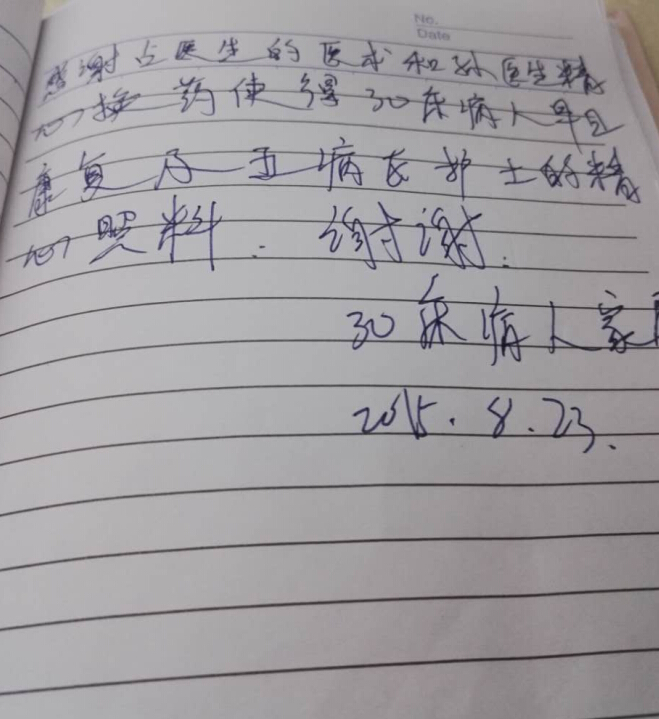 No.
Date
感谢占医生的医术和孙医生精
心换药使得30床病人早日
康复及五病区护士的精
心照料. 谢谢.
30床病人家
2015.8.23.